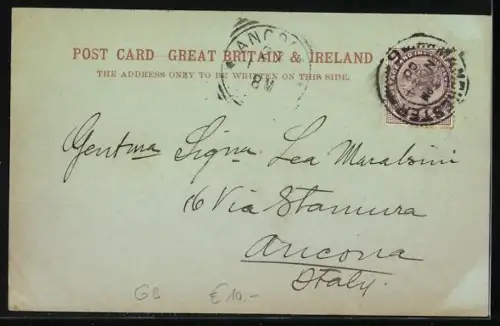 POST CARD GREAT BRITAIN & IRELAND
THE ADDRESS ONLY TO BE WRITTEN ON THIS SIDE.
ANCO
8M
MANCHESTER
Gentma Sigra Lea Marabini
16 Via Stamura
Ancona
Italy.
GB €10.-